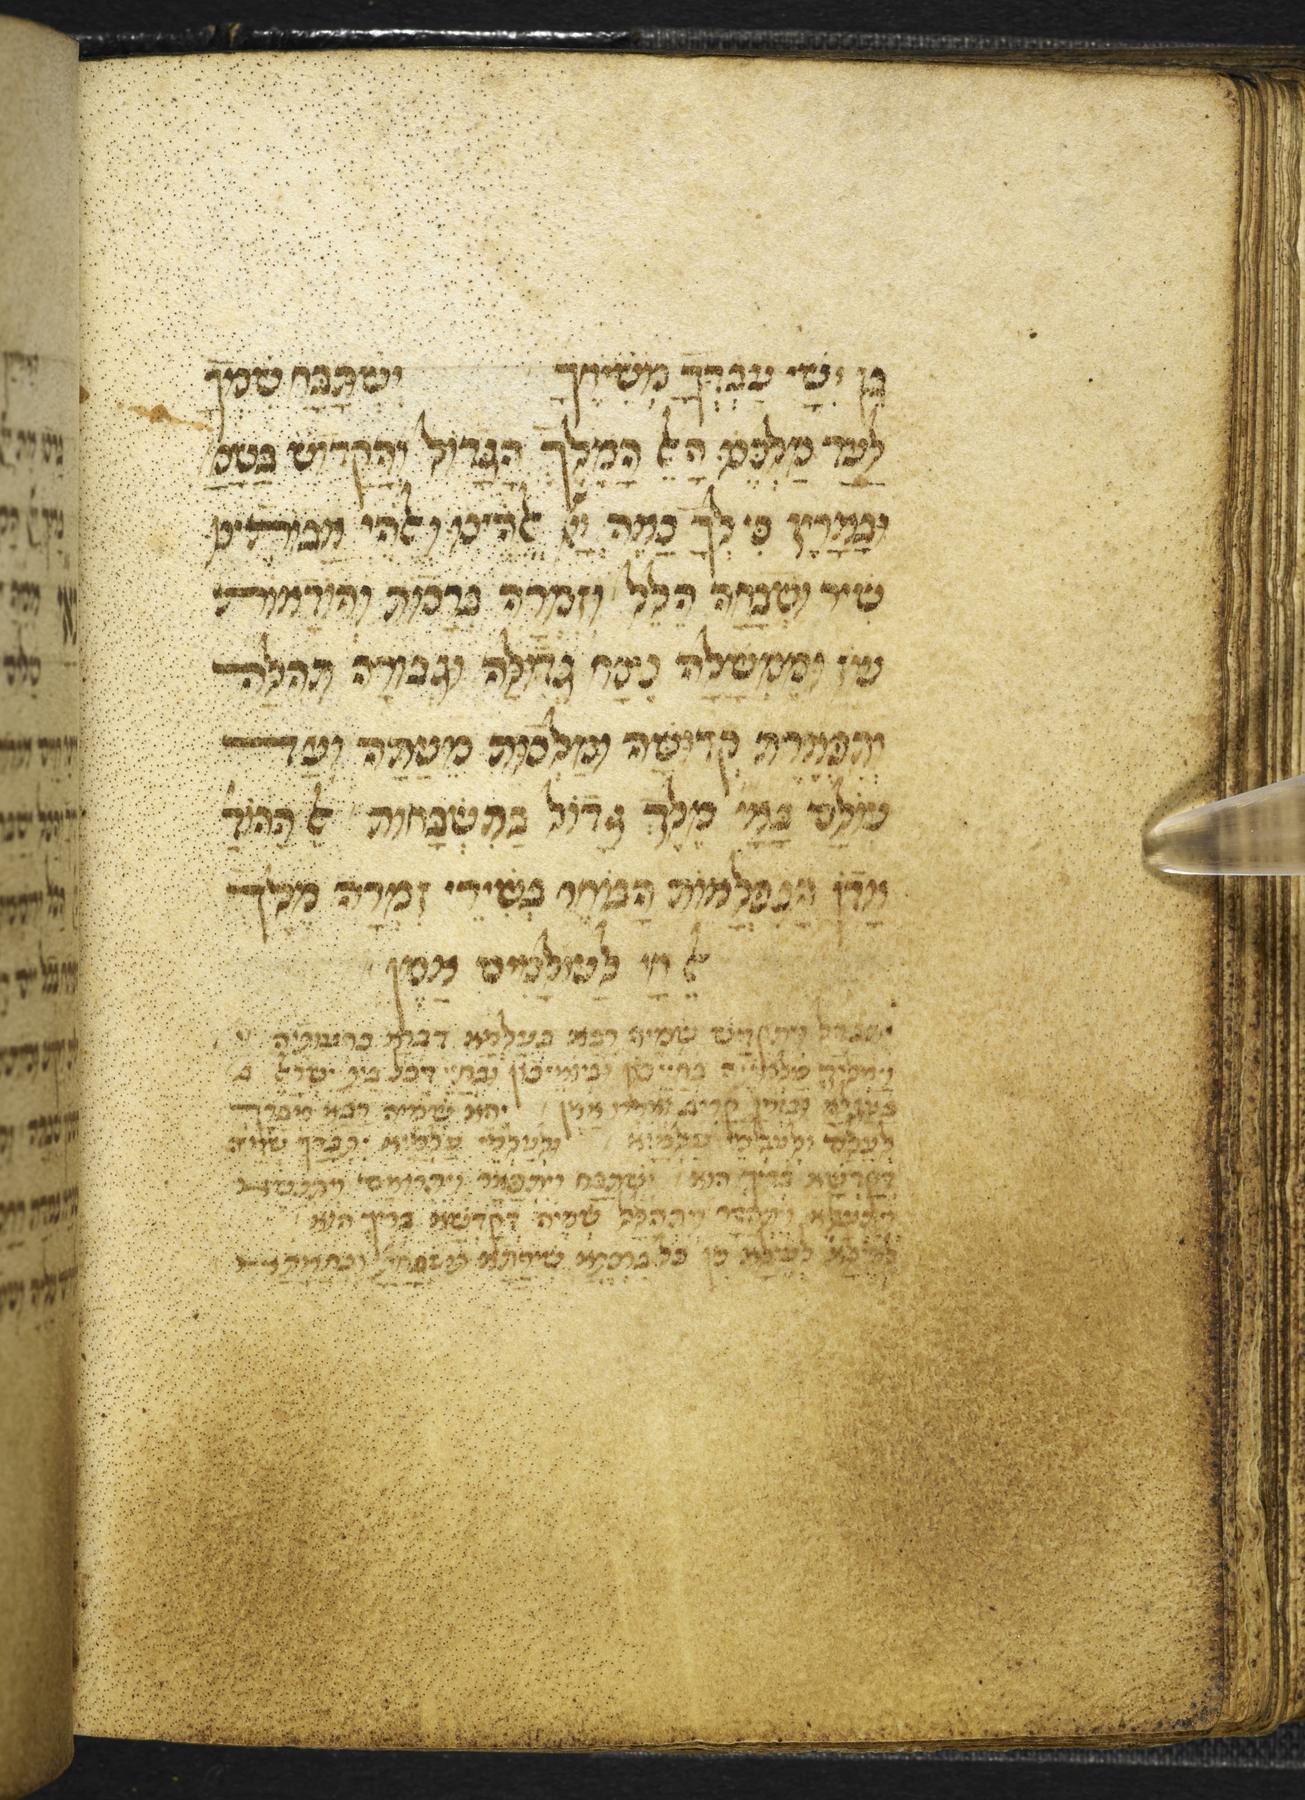 בן ישי עבדך משיחך ישתבח שמך
לעד מלכנו האל המלך הגדול והקדוש בשמ
ובארץ כי לך נאה יי אלהינו ואלהי אבותינו
שיר ושבחה הלל וזמרה ברכות והודאות
עוז וממשלה נצח גדולה וגבורה תהלה
ותפארת קדושה ומלכות מעתה ועד
עולם בא״י מלך גדול בתשבחות אל ההוד
אדון הנפלאות הבוחר בשירי זמרה מלך
אל חי לעולמים אמן
יתגדל ויתקדש שמיה רבא בעלמא דברא כרעותיה
וימליך מלכותיה בחייכון וביומיכון ובחיי דכל בית ישראל
בעגלא ובזמן קריב ואמרו אמן יהא שמיה רבא מברך
לעלם ולעלמי עלמיא ולעלמי עלמיא יתברך שמיה
דקדשא בריך הוא ישתבח ויתפאר ויתרומם ויתנשא
ויתעלה ויתהדר ויתהלל שמיה דקדשא בריך הוא
לעילא לעילא מן כל ברכתא שירתא תשבחתא ונחמתא